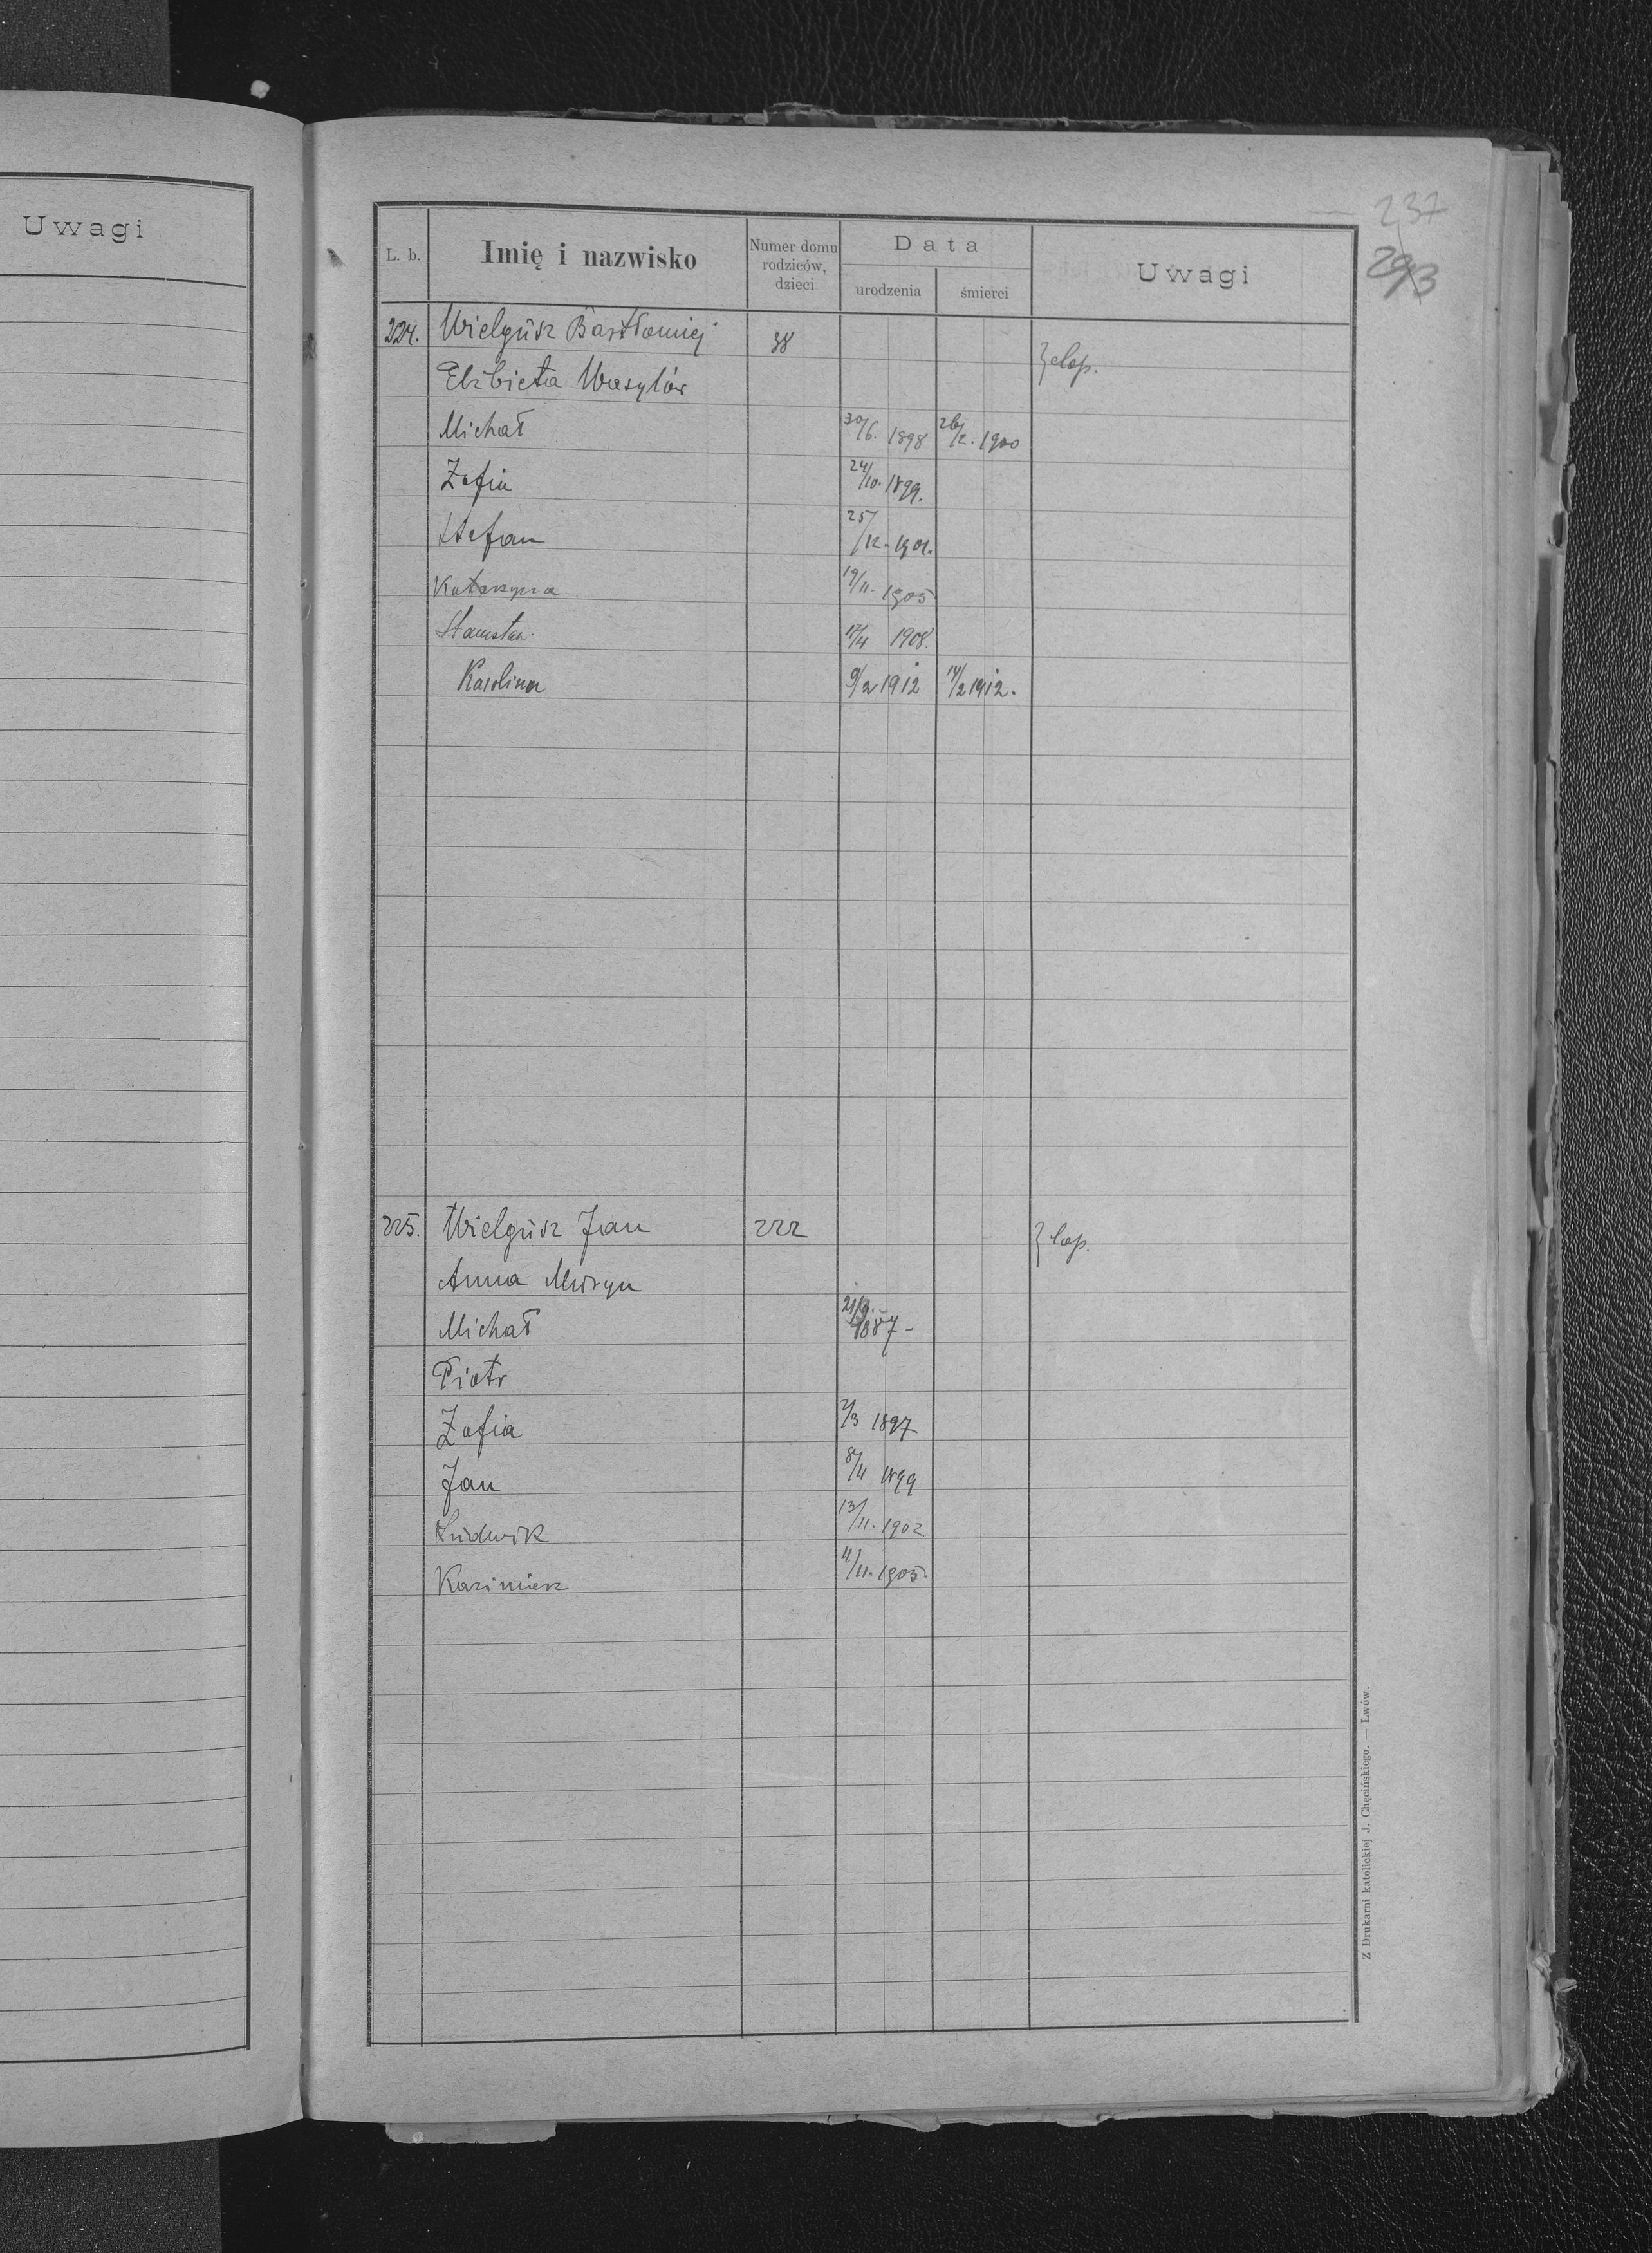 Uwagi
237
293
L. b. Imię i nazwisko Numer domu rodziców, dzieci Data urodzenia śmierci Uwagi
224. Wielgusz Bartłomiej 38
Elżbieta Wasylów
Michał 30/6. 1898 26/12. 1900
Zofia 24/10. 1899.
Stefan 25/12. 1901.
Katarzyna 19/11. 1905
Stanisław 17/4 1908.
Karolina 9/2 1912 14/2 1912.
225. Wielgusz Jan 222
Anna Muryn
Michał 1887
Piotr
Zofia 2/3 1897
Jan 8/11 1899
Ludwik 13/11. 1902
Kazimierz 11/11. 1905.
Z Drukarni katolickiej J. Chęcińskiego. — Lwów.